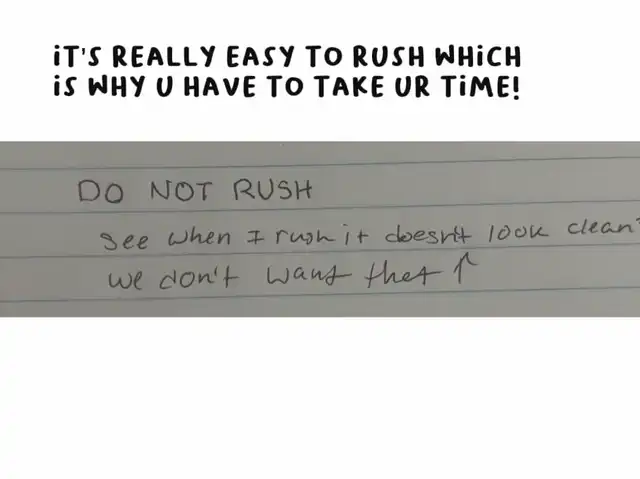 iT'S REALLY EASY TO RUSH WHiCH
iS WHY U HAVE TO TAKE UR TiME!
DO NOT RUSH
see when I rush it doesn't look clean?
we don't want that ↑